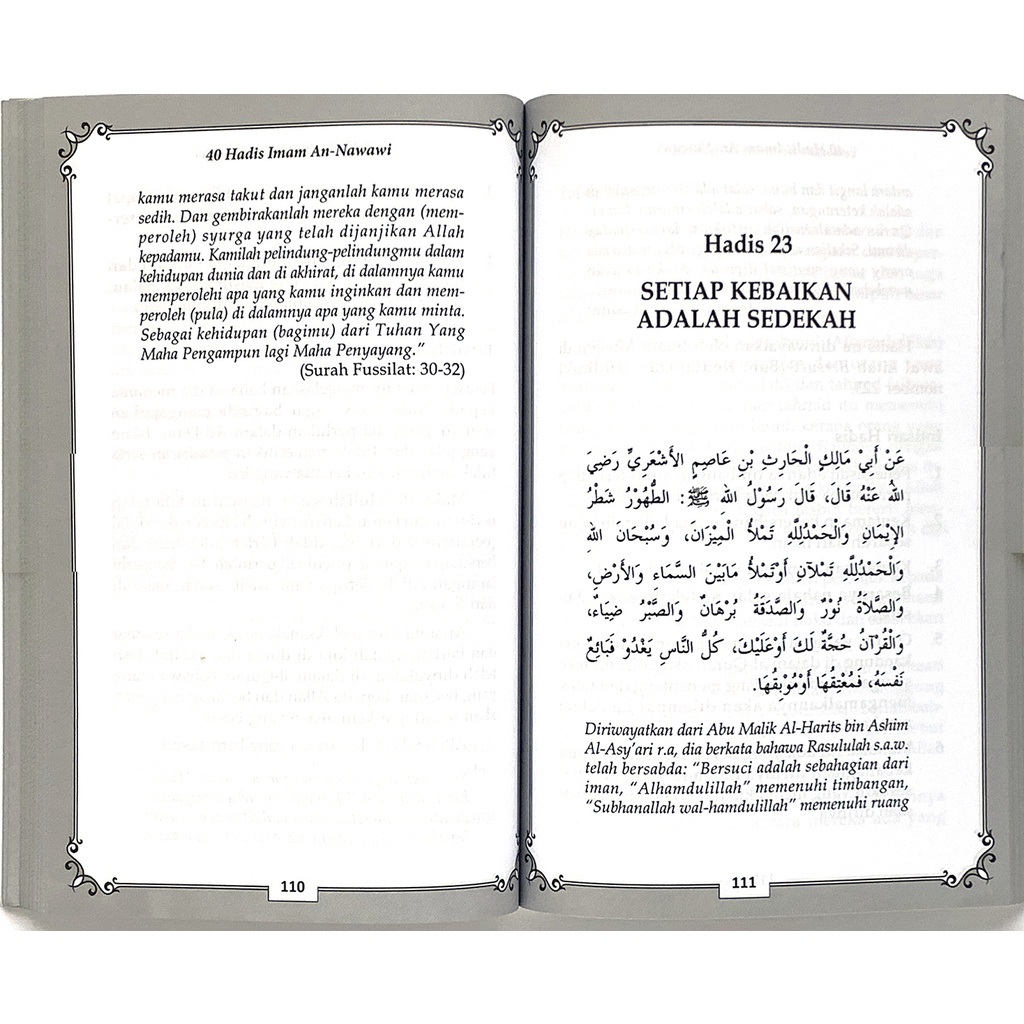 40 Hadis Imam An-Nawawi
kamu merasa takut dan janganlah kamu merasa
sedih. Dan gembirakanlah mereka dengan (mem-
peroleh) syurga yang telah dijanjikan Allah
kepadamu. Kamilah pelindung-pelindungmu dalam
kehidupan dunia dan di akhirat, di dalamnya kamu
memperolehi apa yang kamu inginkan dan mem-
peroleh (pula) di dalamnya apa yang kamu minta.
Sebagai kehidupan (bagimu) dari Tuhan Yang
Maha Pengampun lagi Maha Penyayang.”
(Surah Fussilat: 30-32)
110
Hadis 23
SETIAP KEBAIKAN
ADALAH SEDEKAH
عَنْ أَبِيْ مَالِكٍ الْحَارِثِ بْنِ عَاصِمٍ الأَشْعَرِيِّ رَضِيَ
اللهُ عَنْهُ قَالَ، قَالَ رَسُوْلُ اللهِ ﷺ: الطُّهُوْرُ شَطْرُ
الإِيْمَانِ وَالْحَمْدُلِلَّهِ تَمْلأُ الْمِيْزَانَ، وَسُبْحَانَ اللهِ
وَالْحَمْدُلِلَّهِ تَمْلآنِ أَوْتَمْلأُ مَابَيْنَ السَّمَاءِ وَالأَرْضِ،
وَالصَّلاَةُ نُوْرٌ وَالصَّدَقَةُ بُرْهَانٌ وَالصَّبْرُ ضِيَاءٌ،
وَالْقُرْآنُ حُجَّةٌ لَكَ أَوْعَلَيْكَ، كُلُّ النَّاسِ يَغْدُوْ فَبَائِعٌ
نَفْسَهُ، فَمُعْتِقُهَا أَوْمُوْبِقُهَا.
Diriwayatkan dari Abu Malik Al-Harits bin Ashim
Al-Asy’ari r.a, dia berkata bahawa Rasululah s.a.w.
telah bersabda: “Bersuci adalah sebahagian dari
iman, “Alhamdulillah” memenuhi timbangan,
“Subhanallah wal-hamdulillah” memenuhi ruang
111